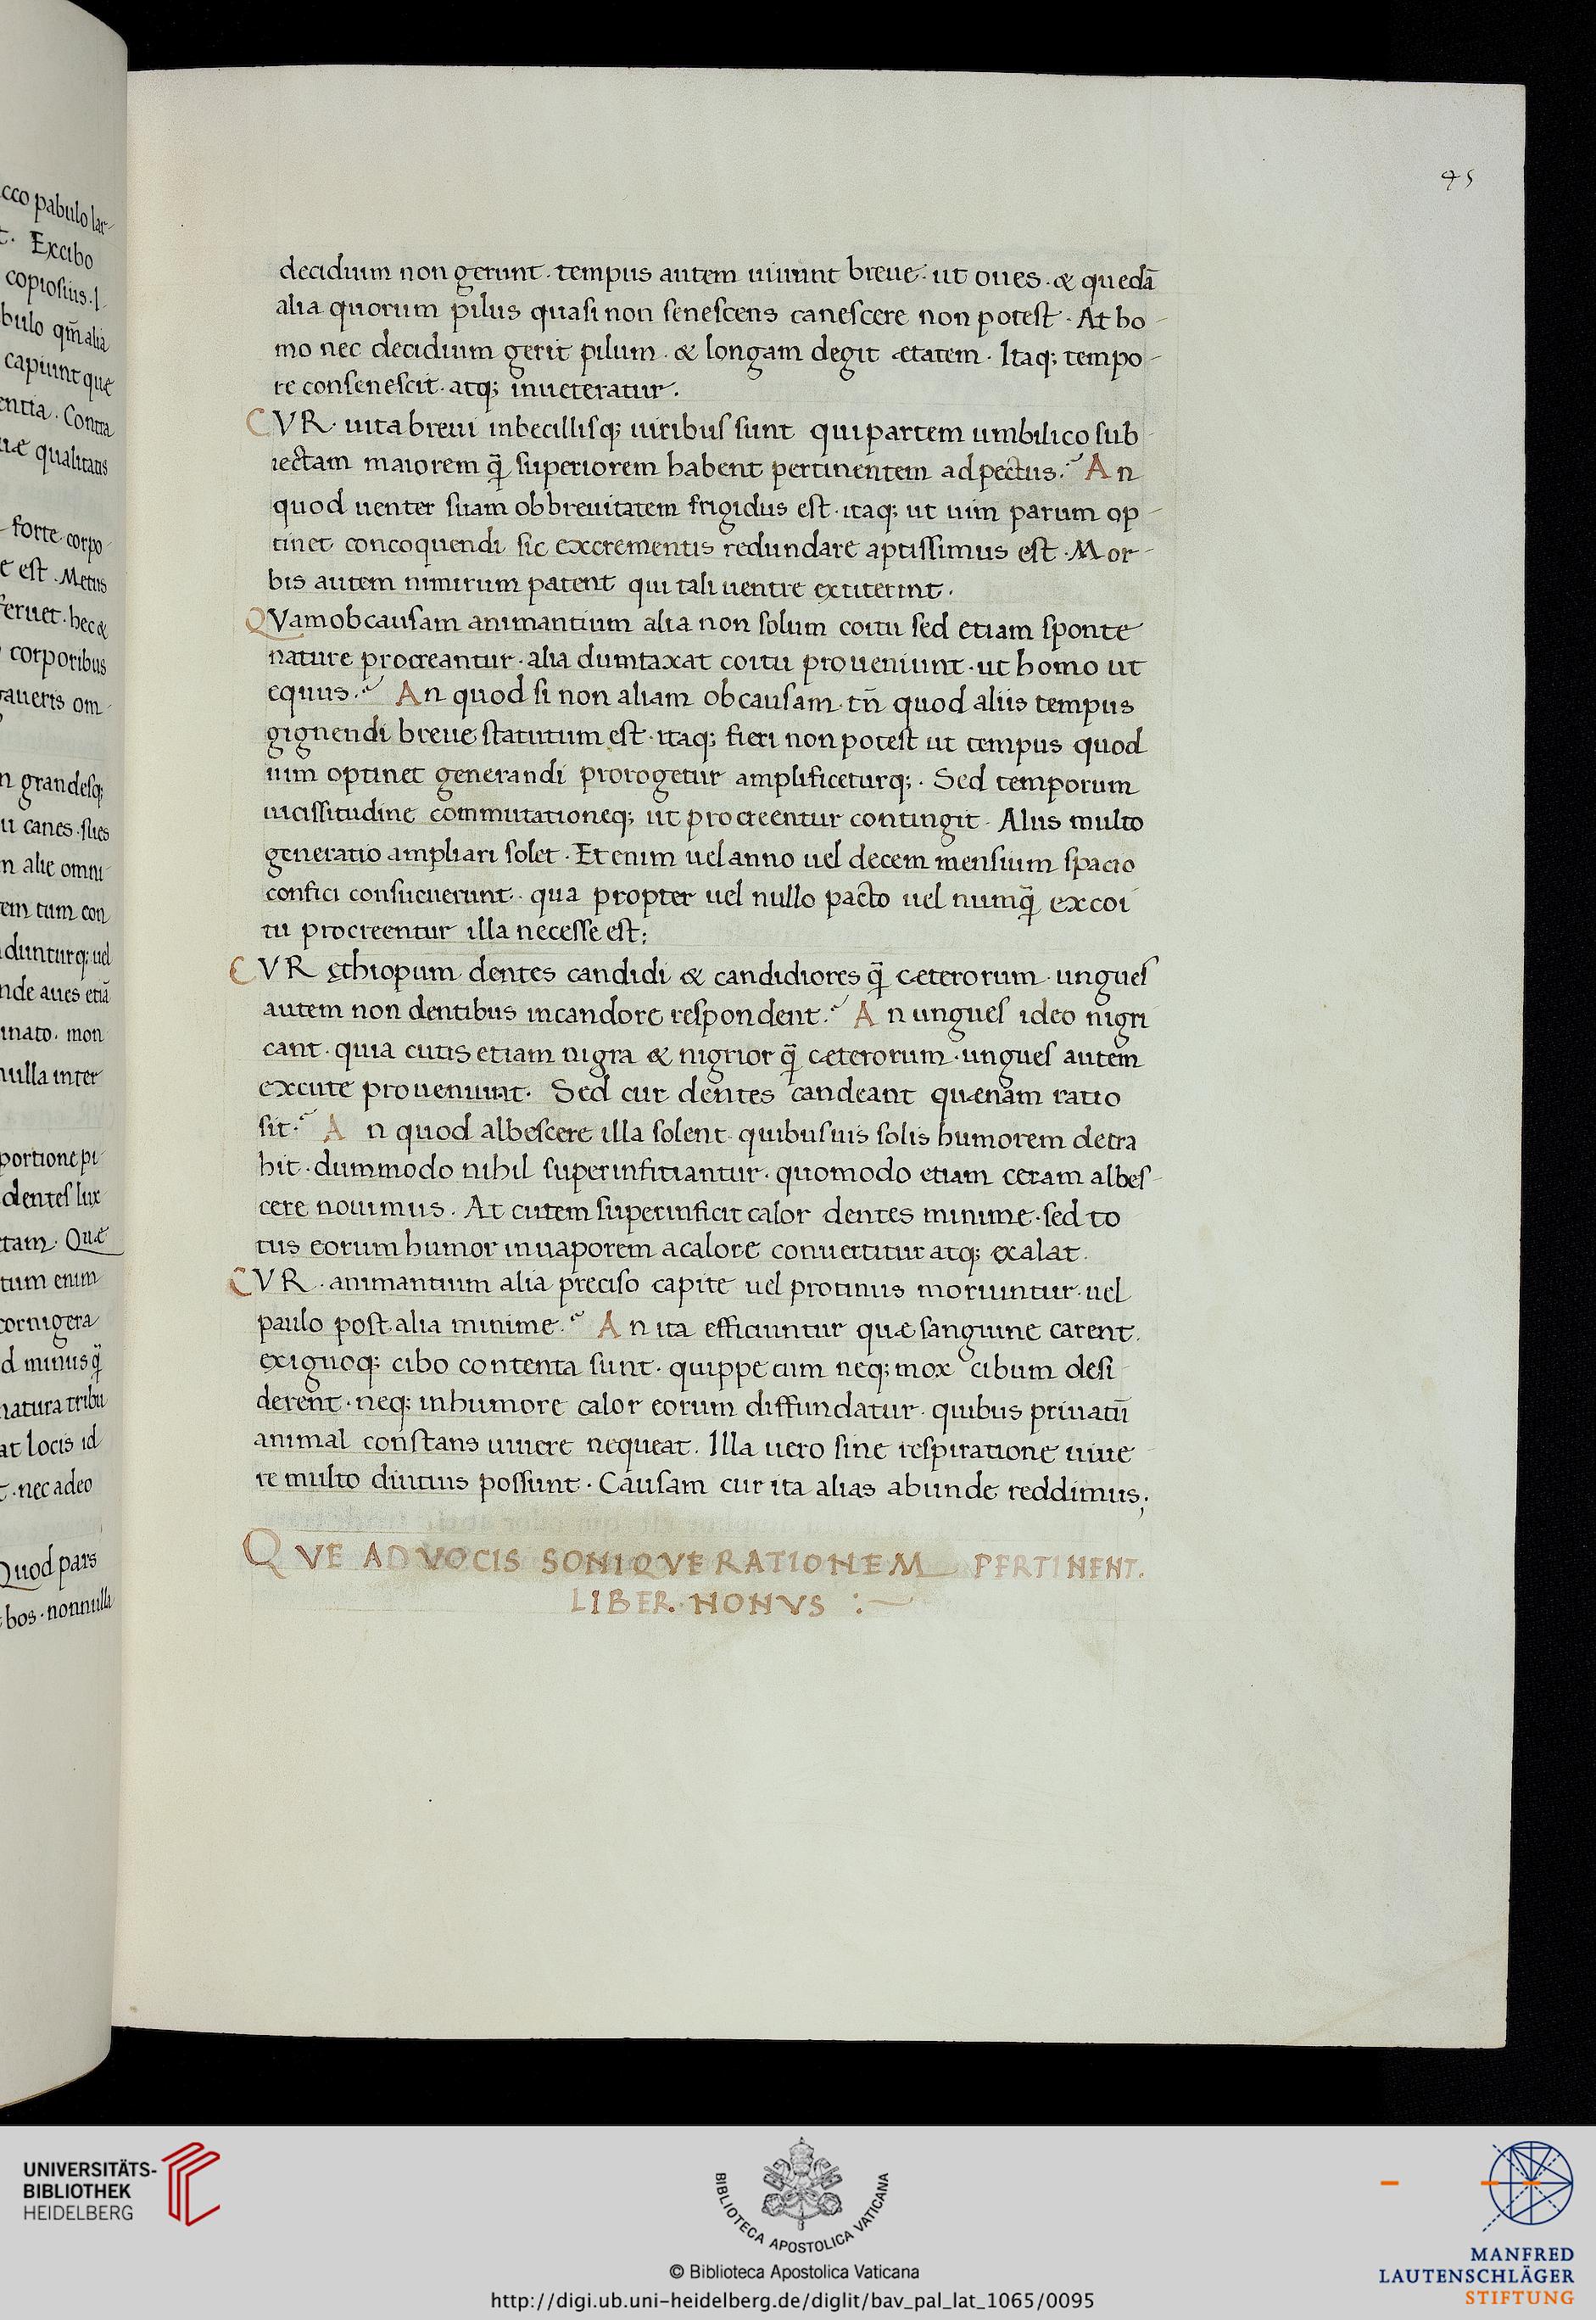 45
decidium non gerunt. tempus autem uiuunt breue. ut oues. & quedā
alia quorum pilus quasi non senescens canescere non potest. At ho-
mo nec decidium gerit pilum. & longam degit ætatem. Itaq; tempo-
re consenescit. atq; inueteratur.
CVR. uita breui inbecillisq; uiribus sunt qui partem umbilico sub-
iectam maiorem q̄ superiorem habent pertinentem ad pectus? An
quod uenter suam ob breuitatem frigidus est. itaq; ut uim parum op-
tinet concoquendi sic excrementis redundare aptissimus est. Mor-
bis autem nimirum patent qui tali uentre extiterint.
QVam ob causam animantium alia non solum coitu sed etiam sponte
nature procreantur. alia dumtaxat coitu proueniunt. ut homo ut
equus? An quod si non aliam ob causam. tn̄ quod aliis tempus
gignendi breue statutum est. itaq; fieri non potest ut tempus quod
uim optinet generandi prorogetur amplificeturq;. Sed temporum
uicissitudine commutationeq; ut procreentur contingit. Aliis multo
generatio ampliari solet. Et enim uel anno uel decem mensium spacio
confici consueuerunt. qua propter uel nullo pacto uel numq̄ ex coi
tu procreentur illa necesse est;
CVR ęthiopum dentes candidi & candidiores q̄ cæterorum. ungues
autem non dentibus in candore respondent? An ungues ideo nigri
cant. quia cutis etiam nigra & nigrior q̄ cæterorum. ungues autem
ex cute proueniunt. Sed cur dentes candeant quænam ratio
sit? An quod albescere illa solent quibusuis solis humorem detra
hit. dummodo nihil superinfitiantur. quomodo etiam ceram albes-
cere nouimus. At cutem superinficit calor dentes minime. sed to
tus eorum humor in uaporem a calore conuertitur atq; exalat.
CVR. animantium alia preciso capite uel protinus moriuntur. uel
paulo post. alia minime? An ita efficiuntur quæ sanguine carent.
exiguoq; cibo contenta sunt. quippe cum neq; mox cibum desi
derent. neq; in humore calor eorum diffundatur. quibus priuatū
animal constans uiuere nequeat. Illa uero sine respiratione uiue
re multo diutius possunt. Causam cur ita alias abunde reddimus;
QVE AD VOCIS SONIQVE RATIONEM PERTINENT.
LIBER NONVS :~
UNIVERSITÄTS-
BIBLIOTHEK
HEIDELBERG
BIBLIOTECA APOSTOLICA VATICANA
© Biblioteca Apostolica Vaticana
http://digi.ub.uni-heidelberg.de/diglit/bav_pal_lat_1065/0095
MANFRED
LAUTENSCHLÄGER
STIFTUNG